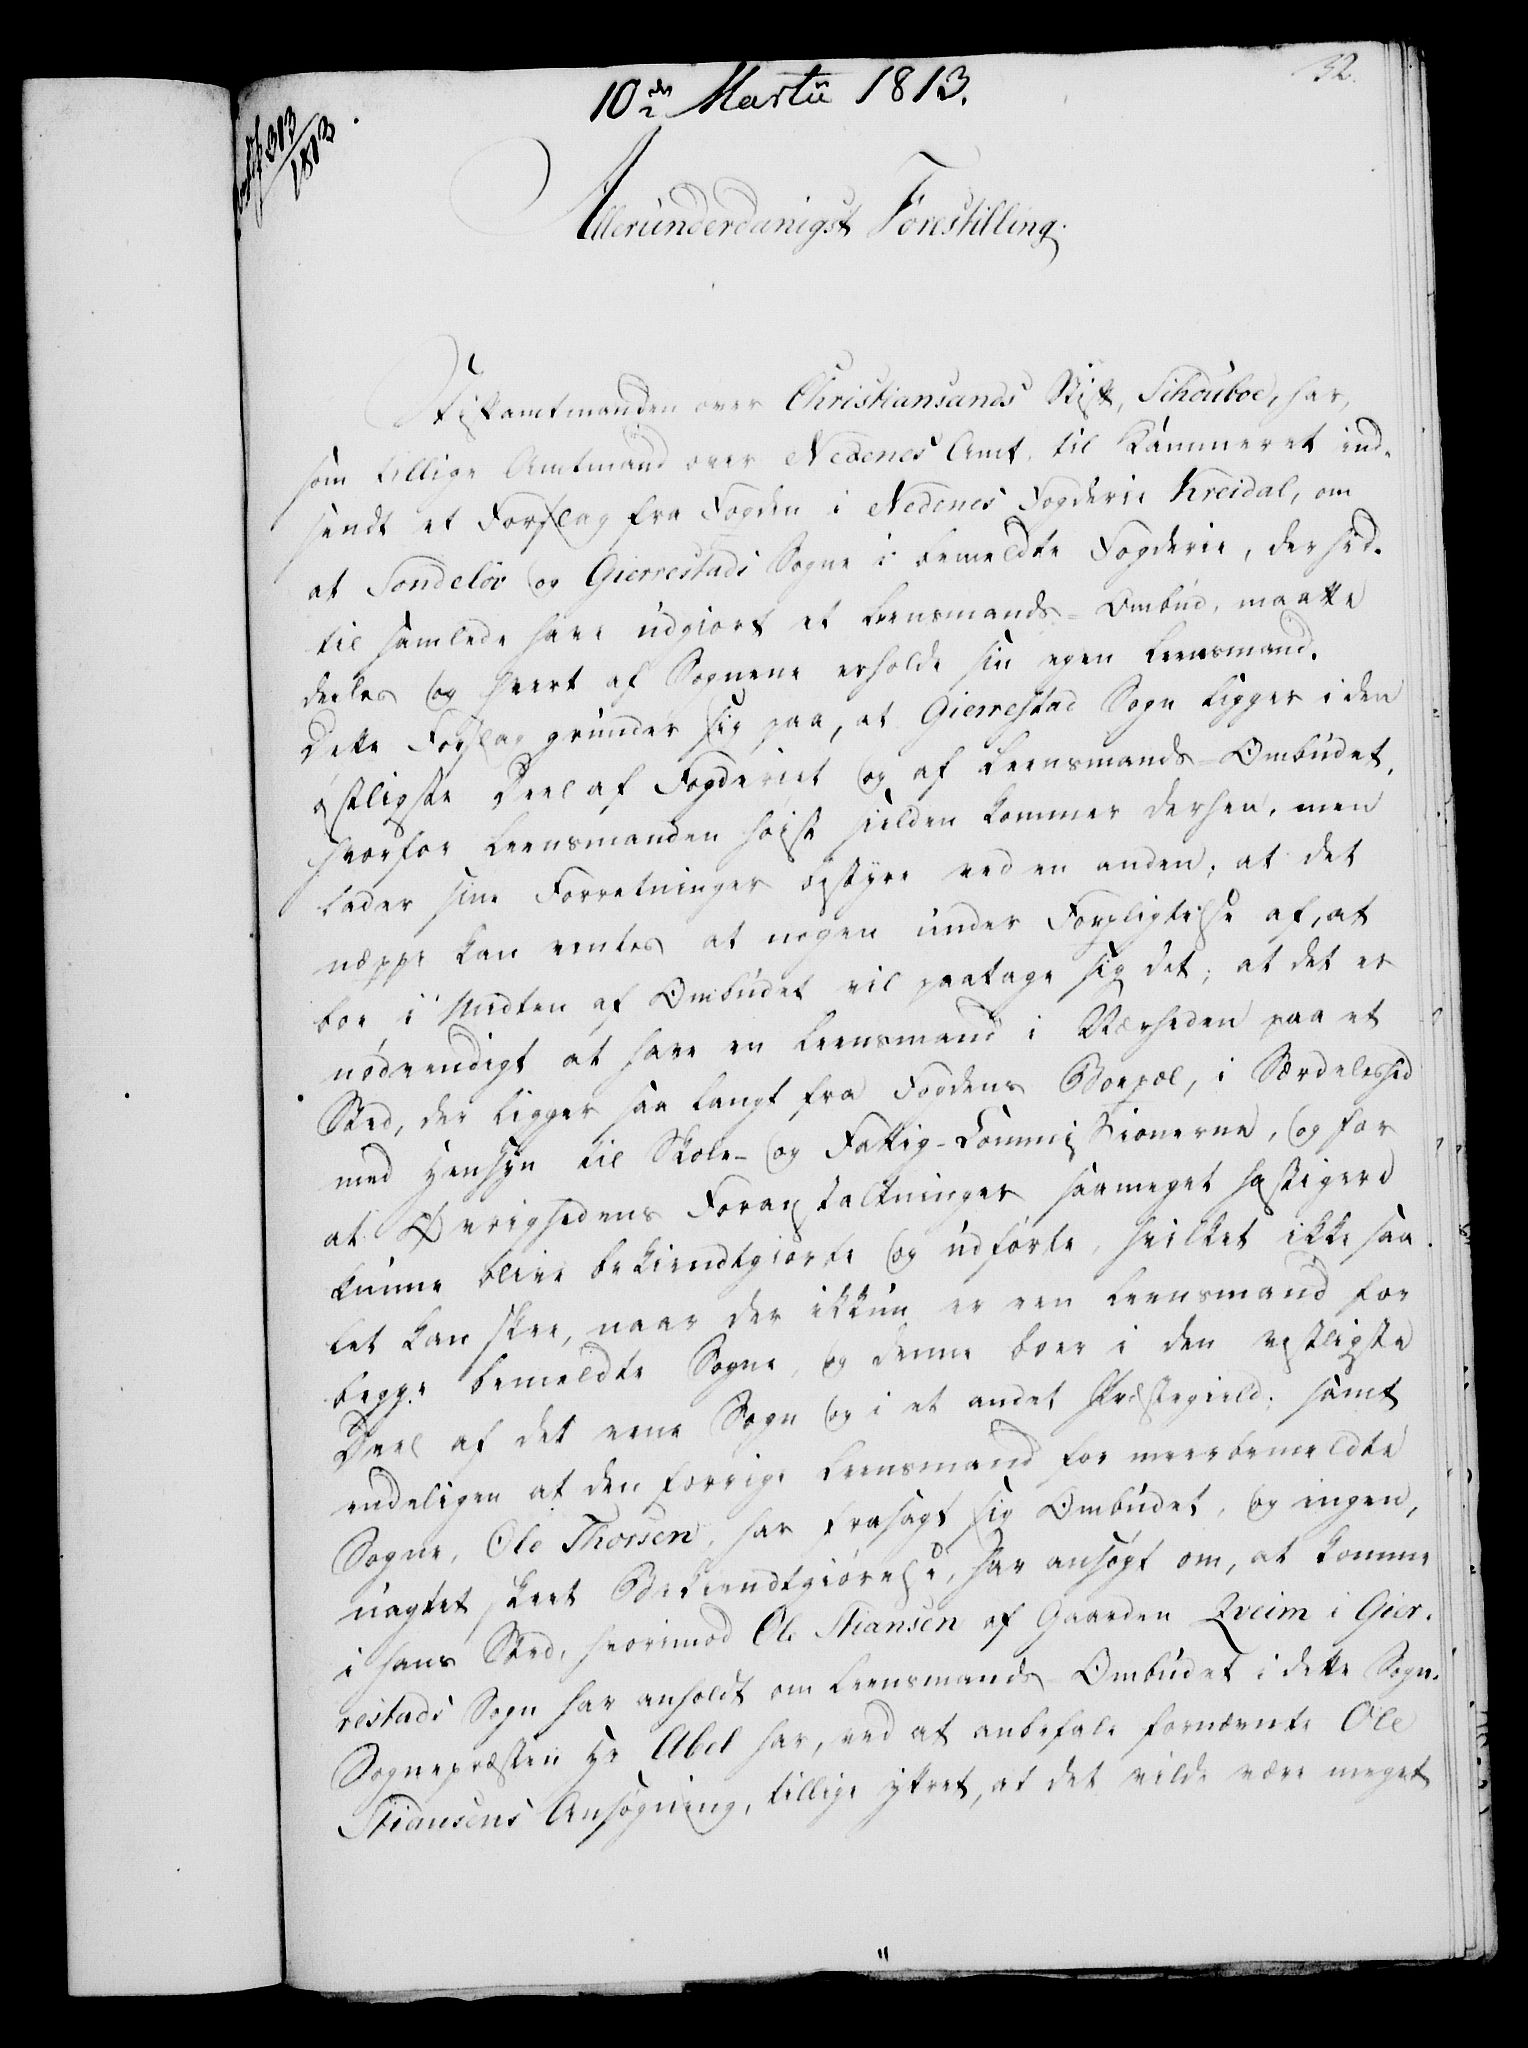 32.
10de Martii 1813.
313/1813
Allerunderdanigst Forestilling.
Stiftamtmanden over Christiansands Stift, Schouboe, har,
som tillige Amtmand over Nedenes Amt, til Kammeret ind-
sendt et Forslag fra Fogden i Nedenes Fogderie Kreidal, om
at Sondeløv og Gierrestads Sogne i bemeldte Fogderie, der hid-
til samlede have udgiort et Leensmands-Ombud, maatte
deeles og hvert af Sognene erholde sin egen Leensmand.
Dette Forslag grunder sig paa, at Gierrestad Sogn ligger i den
østligste Deel af Fogderiet og af Leensmands-Ombudet,
hvorfor Leensmanden høist sielden kommer derhen, men
lader sine Forretninger bestyre ved en anden; at det
neppe kan ventes at nogen under Forpligtelse af, at
boe i Midten af Ombudet vil paatage sig det; at det er
nødvendigt at have en Leensmand i Nærheden paa et
Sted, der ligger saa langt fra Fogdens Boepæl, i Særdeleshed
med Hensyn til Skole- og Fattig-Commissionerne, og for
at Øvrighedens Foranstaltninger saameget hastigere
kunne blive bekiendtgiorte og udførte, hvilket ikke saa
let kan skee, naar der ikkun er een Leensmand for
begge bemeldte Sogne, og denne boer i den vestligste
Deel af det eene Sogn og i et andet Præstegield; samt
endeligen at den forrige Leensmand for meerbemeldte
Sogne, Ole Thorsen, har frasagt sig Ombudet, og ingen,
uagtet skeet Bekiendtgiørelse, har ansøgt om, at komme
i hans Sted, hvorimod Ole Stiansen af Gaarden Qveim i Gier-
restads Sogn har anholdt om Leensmands-Ombudet i dette Sogn.
Sognepræsten Hr Abel har, ved at anbefale fornævnte Ole
Stiansens Ansøgning, tillige yttret, at det vilde være meget
"